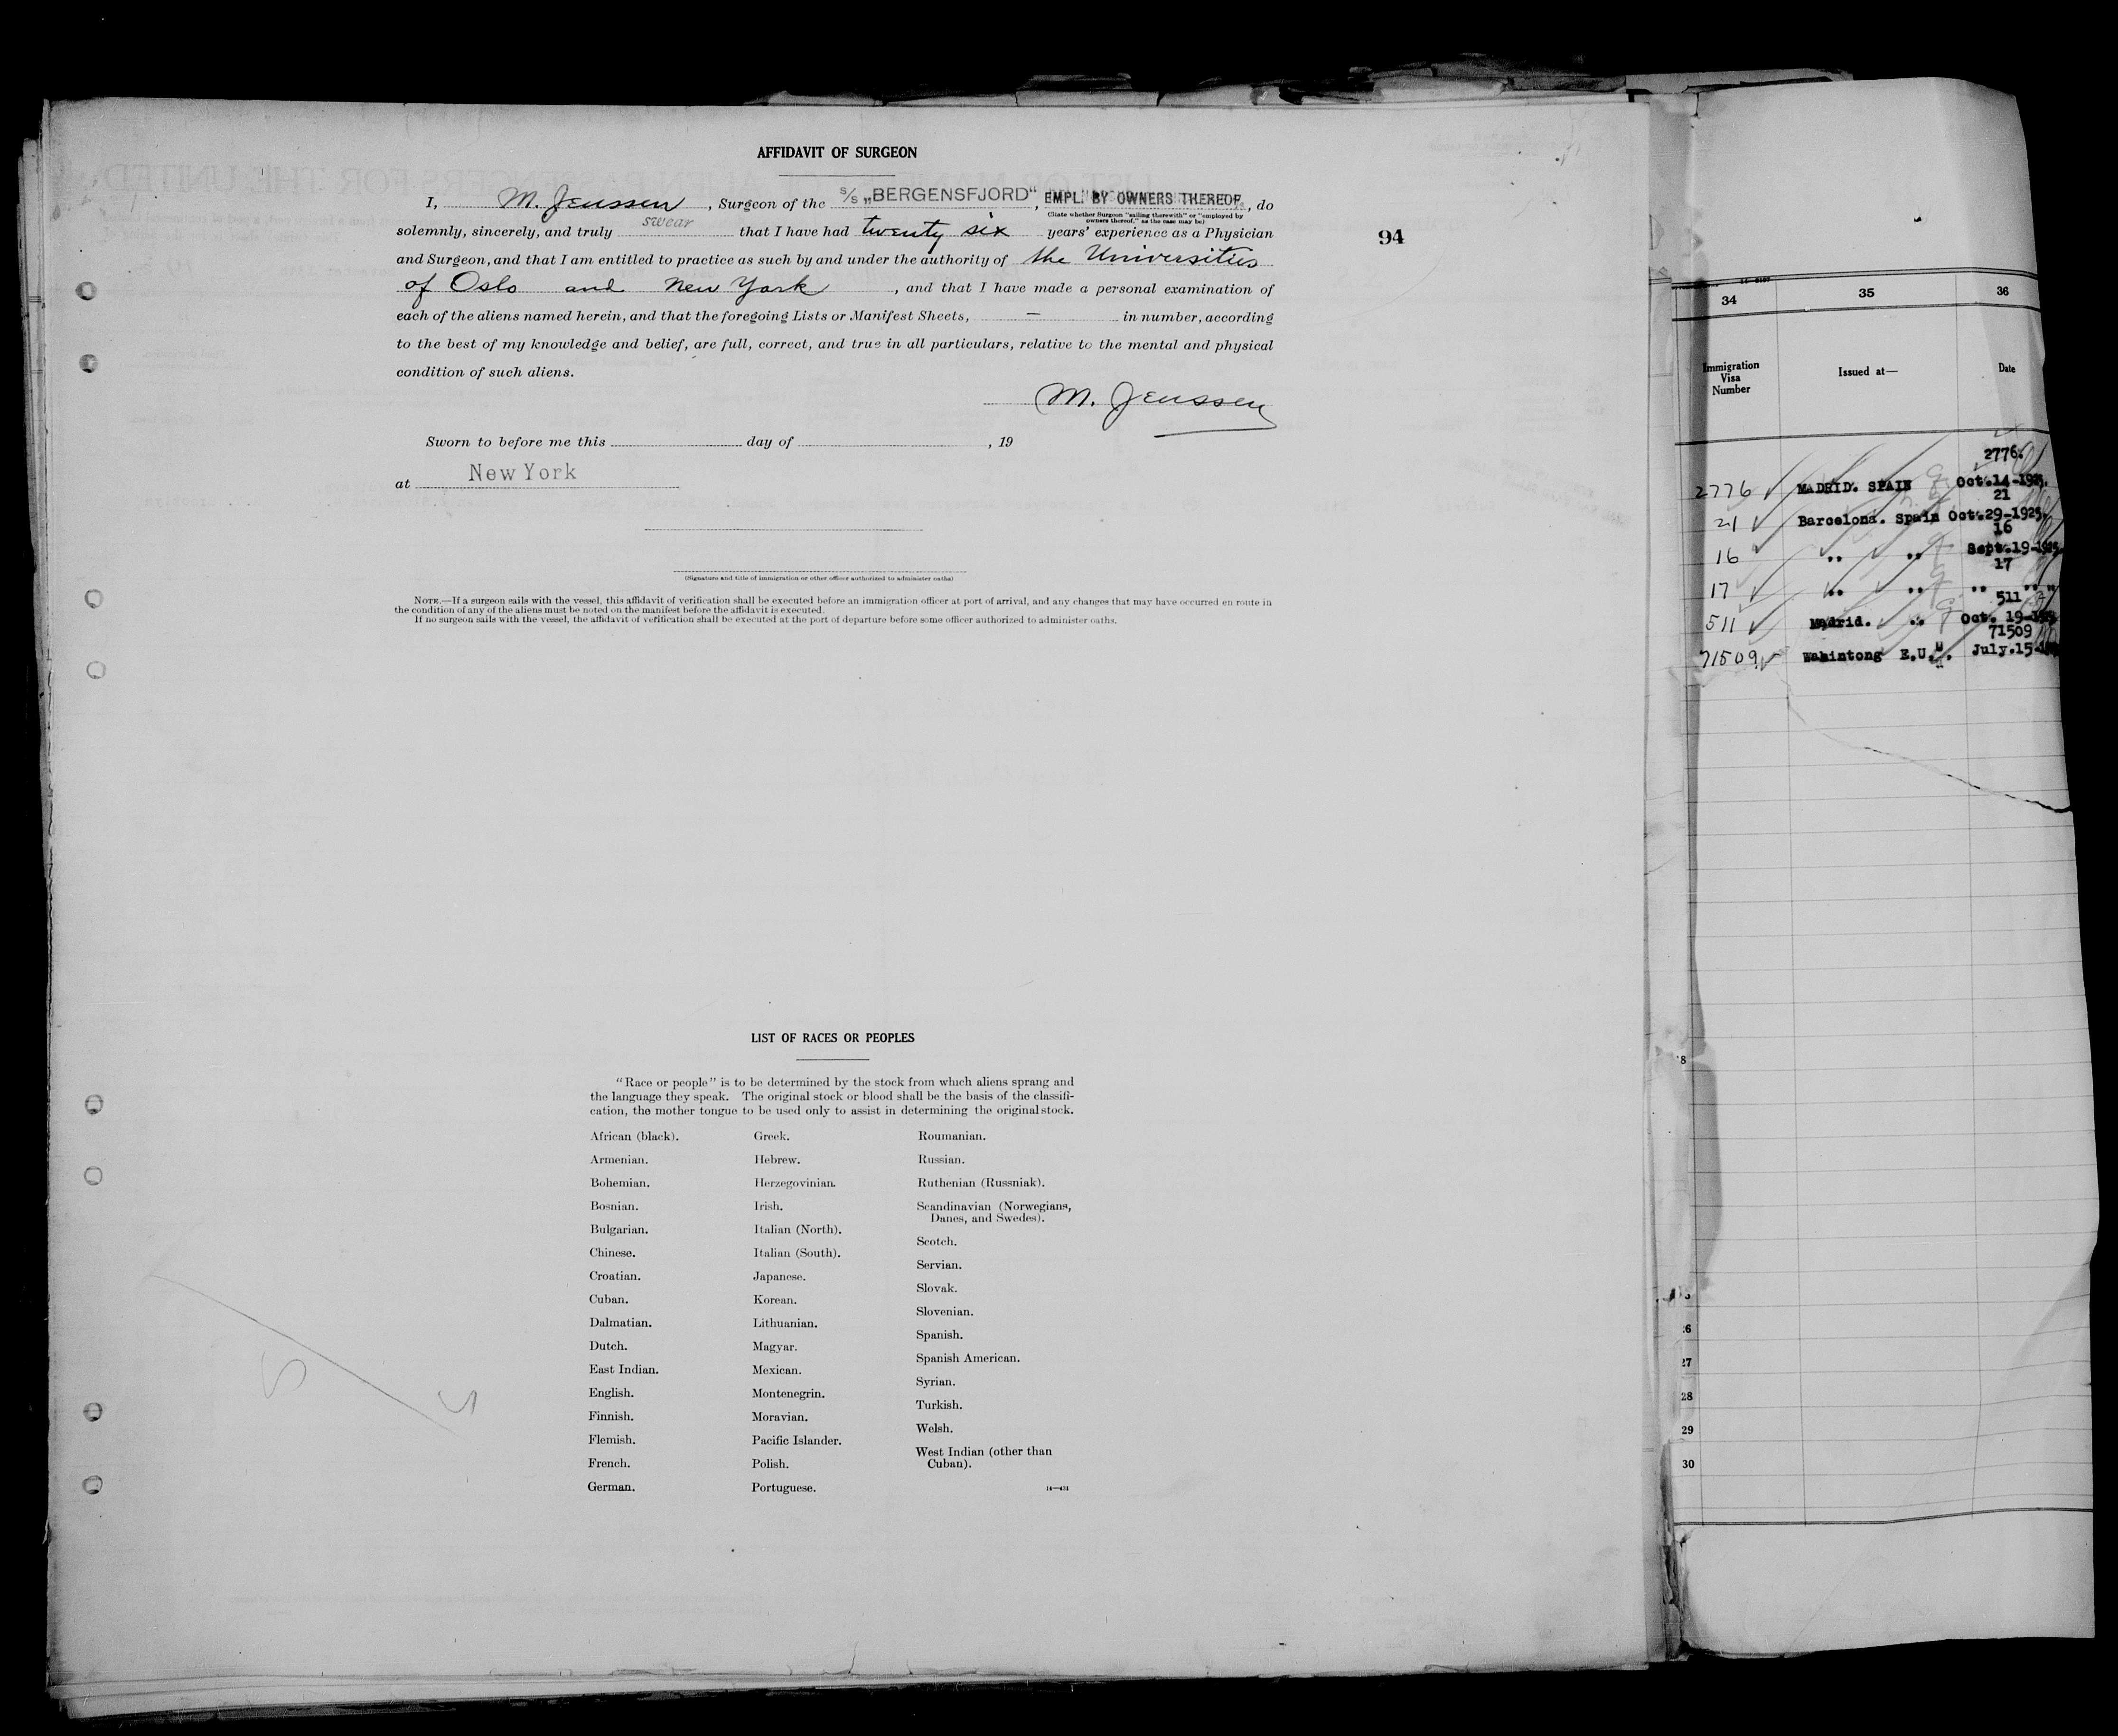 AFFIDAVIT OF SURGEON
I, M. Jenssen, Surgeon of the S/S „BERGENSFJORD“, EMPL. BY OWNERS THEREOF, do
(State whether Surgeon "sailing therewith" or "employed by
owners thereof," as the case may be)
solemnly, sincerely, and truly swear that I have had twenty six years' experience as a Physician
and Surgeon, and that I am entitled to practice as such by and under the authority of the Universities
of Oslo and New York, and that I have made a personal examination of
each of the aliens named herein, and that the foregoing Lists or Manifest Sheets, — in number, according
to the best of my knowledge and belief, are full, correct, and true in all particulars, relative to the mental and physical
condition of such aliens.
M. Jenssen
Sworn to before me this day of , 19
at New York
(Signature and title of immigration or other officer authorized to administer oaths)
NOTE.—If a surgeon sails with the vessel, this affidavit of verification shall be executed before an immigration officer at port of arrival, and any changes that may have occurred en route in
the condition of any of the aliens must be noted on the manifest before the affidavit is executed.
If no surgeon sails with the vessel, the affidavit of verification shall be executed at the port of departure before some officer authorized to administer oaths.
94
LIST OF RACES OR PEOPLES
"Race or people" is to be determined by the stock from which aliens sprang and
the language they speak. The original stock or blood shall be the basis of the classifi-
cation, the mother tongue to be used only to assist in determining the original stock.
African (black).
Armenian.
Bohemian.
Bosnian.
Bulgarian.
Chinese.
Croatian.
Cuban.
Dalmatian.
Dutch.
East Indian.
English.
Finnish.
Flemish.
French.
German.
Greek.
Hebrew.
Herzegovinian.
Irish.
Italian (North).
Italian (South).
Japanese.
Korean.
Lithuanian.
Magyar.
Mexican.
Montenegrin.
Moravian.
Pacific Islander.
Polish.
Portuguese.
Roumanian.
Russian.
Ruthenian (Russniak).
Scandinavian (Norwegians,
Danes, and Swedes).
Scotch.
Servian.
Slovak.
Slovenian.
Spanish.
Spanish American.
Syrian.
Turkish.
Welsh.
West Indian (other than
Cuban).
34 35 36
Immigration
Visa
Number
Issued at—
Date
2776.
2776 MADRID. SPAIN Oct.14-1925.
21
21 Barcelona. Spain Oct.29-1925.
16
16 ,, ,, Sept.19-1925
17
17 ,, ,, ,, ,, ,,
511
511 Madrid. ,, Oct. 19-
71509
71509 Wahintong E.U. July.15-
26
27
28
29
30